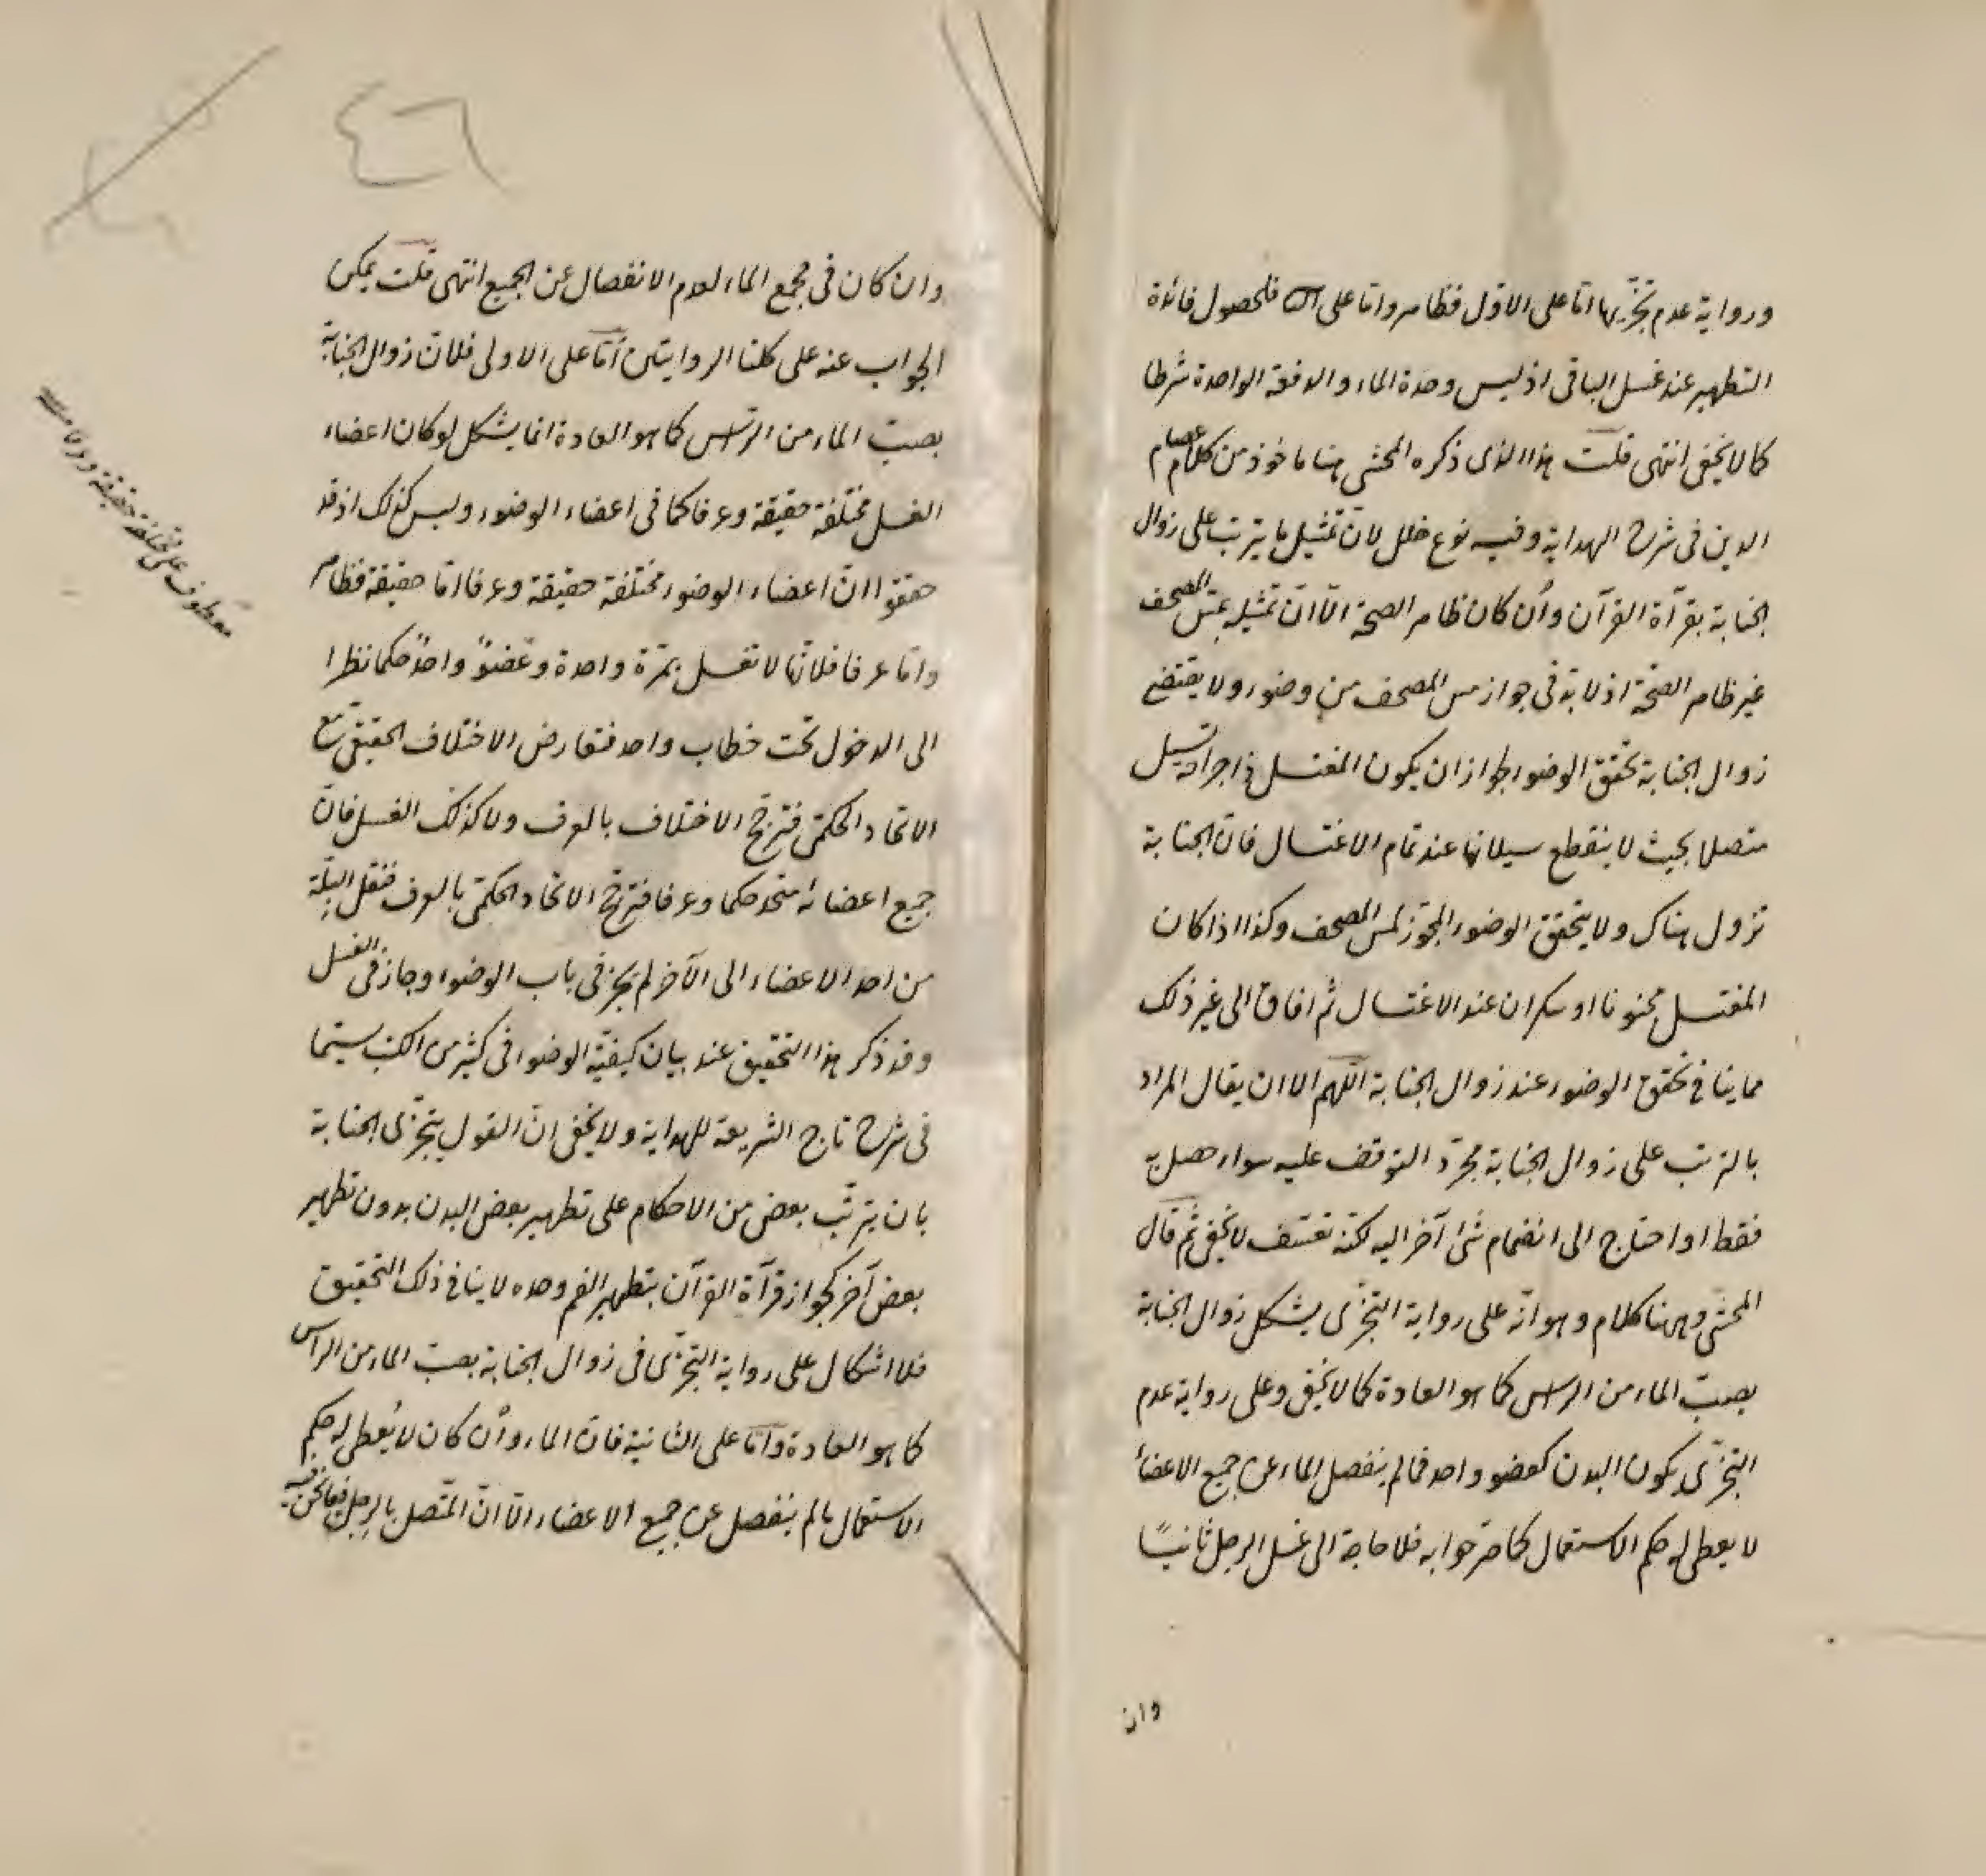 ورواية عدم تجزيها اما على الاول فظاهر واما على الثا فلحصول فائدة
التطهير عند غسل الباقى اذ ليس وحدة الماء والدفقة الواحدة شرطا
كما لا يخفى انتهى قلت هذا الذى ذكره المحشى هنا ماخوذ من كلام عصام
الدين فى شرح الهداية وفيه نوع خلل لان تمثيل ما يترتب على زوال
الجنابة بقرآة القرآن وان كان ظاهر الصحة الا ان تمثيله بمس المصحف
غير ظاهر الصحة اذ لا بد فى جواز مس المصحف من وضوء ولا يقتضى
زوال الجنابة تحقق الوضوء لجواز ان يكون المغتسل ذا جراحة تسيل
متصلا بحيث لا ينقطع سيلانها عند تمام الاغتسال فان الجنابة
تزول هناك ولا يتحقق الوضوء المجوز لمس المصحف وكذا اذا كان
المغتسل مجنونا او سكران عند الاغتسال ثم افاق الى غير ذلك
مما ينافى تحقق الوضوء عند زوال الجنابة اللهم الا ان يقال المراد
بالترتب على زوال الجنابة مجرد التوقف عليه سواء حصل به
فقط او احتاج الى انضمام شئ آخر اليه لكنه تعسف لا يخفى ثم قال
المحشى وههنا كلام وهو انه على رواية التجزى يشكل زوال الجنابة
بصب الماء من الراس كما هو العادة كما لا يخفى وعلى رواية عدم
التجزى يكون البدن كعضو واحد فما لم ينفصل الماء عن جميع الاعضاء
لا يعطى له حكم الاستعمال كما صرحوا به فلا حاجة الى غسل الرجل ثانيا
وان
وان كان فى مجمع الماء لعدم الانفصال عن الجميع انتهى قلت يمكن
الجواب عنه على كلتا الروايتين اما على الاولى فلان زوال الجنابة
بصب الماء من الراس كما هو العادة انما يشكل لو كان اعضاء
الغسل مختلفة حقيقة وعرفا كما فى اعضاء الوضوء وليس كذلك اذ قد
حققوا ان اعضاء الوضوء مختلفة حقيقة وعرفا اما حقيقة فظاهر
واما عرفا فلانها لا تغسل بمرة واحدة وعضو واحد حكما نظرا
الى الدخول تحت خطاب واحد فتعارض الاختلاف الحقيقى مع
الاتحاد الحكمى فترجح الاختلاف بالعرف ولا كذلك الغسل فان
جميع اعضائه متحد حكما وعرفا فترجح الاتحاد الحكمى بالعرف فنقل البلة
من احد الاعضاء الى الآخر لم يجز فى باب الوضوء وجاز فى الغسل
وقد ذكر هذا التحقيق عند بيان كيفية الوضوء فى كثير من الكتب سيما
فى شرح تاج الشريعة للهداية ولا يخفى ان القول بتجزى الجنابة
بان يترتب بعض من الاحكام على تطهير بعض البدن بدون تطهير
بعض آخر كجواز قرآة القرآن بتطهير الفم وحده لا ينافى ذلك التحقيق
فلا اشكال على رواية التجزى فى زوال الجنابة بصب الماء من الراس
كما هو العادة واما على الثانية فان الماء وان كان لا يعطى له حكم
الاستعمال ما لم ينفصل عن جميع الاعضاء الا ان المتصل بالرجل فيما نحن فيه
معطوف على مختلفة حقيقة وعرفا منه